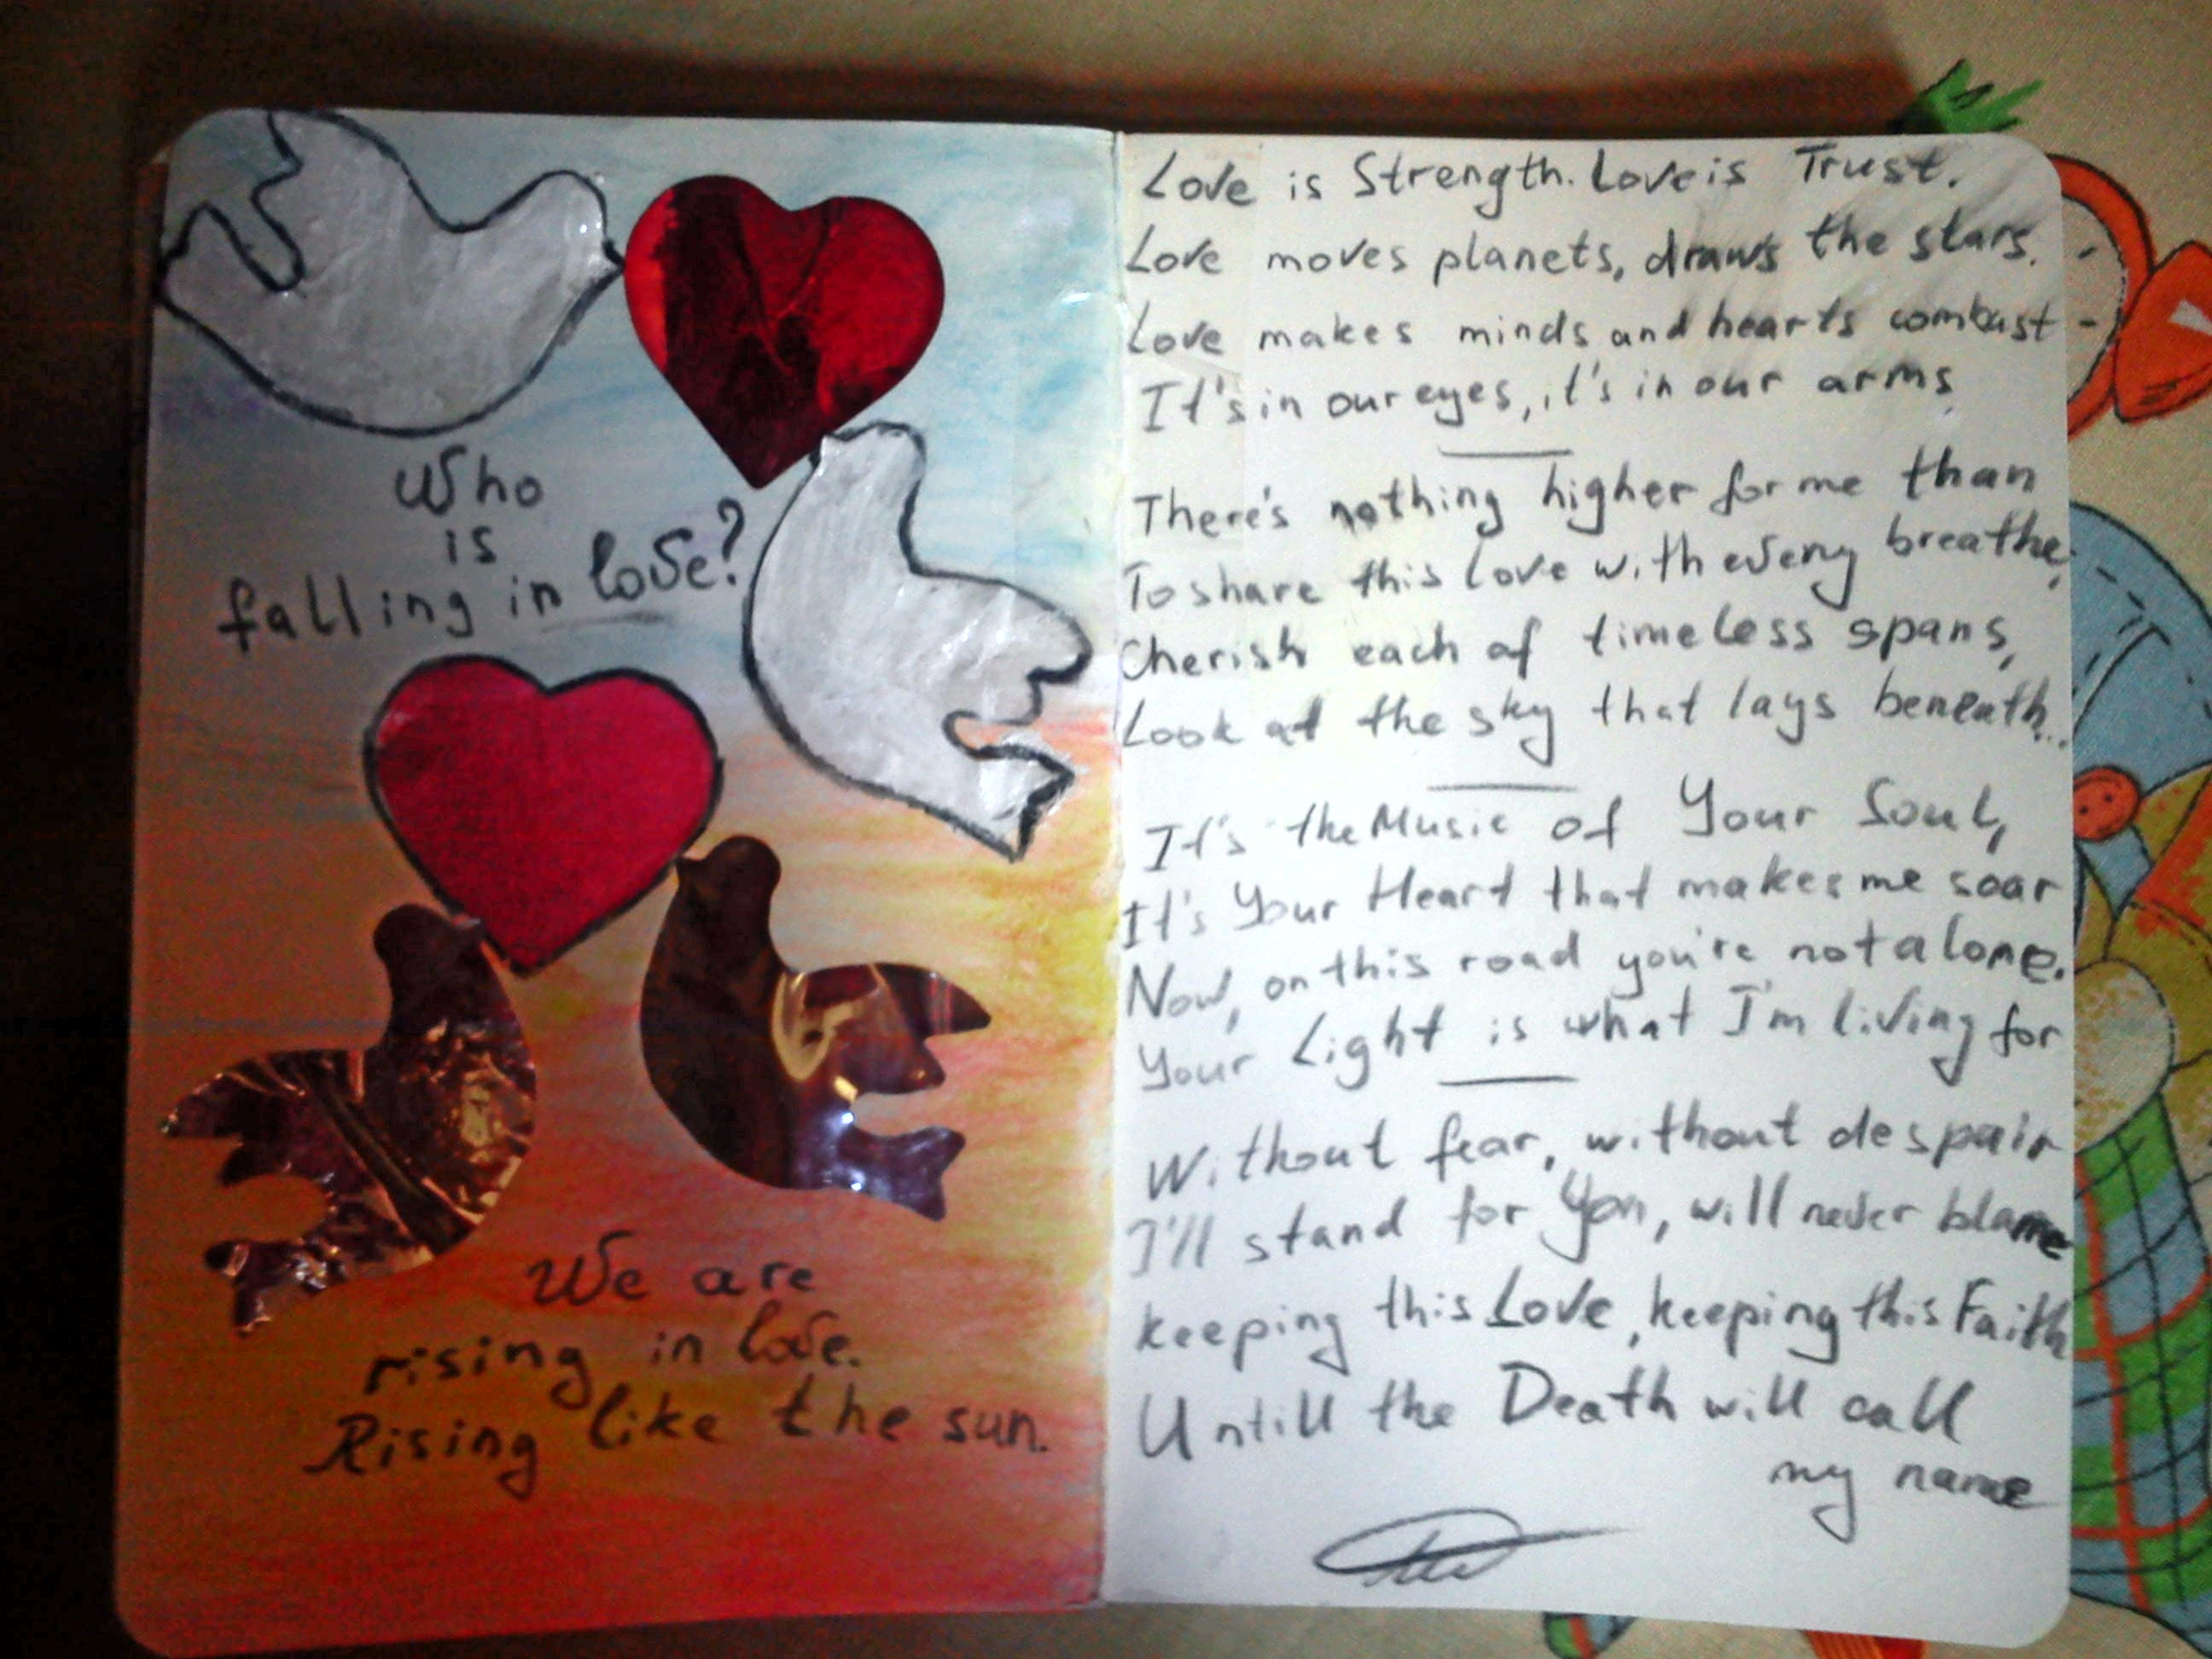 Who
is
falling in love?
We are
rising in love.
Rising like the sun.
Love is Strength. Love is Trust.
Love moves planets, draws the stars. -
Love makes minds and hearts combust -
It's in our eyes, it's in our arms.
There's nothing higher for me than
To share this love with every breathe,
Cherish each of timeless spans,
Look at the sky that lays beneath...
It's the Music of Your Soul,
It's Your Heart that makes me soar
Now, on this road you're not alone.
Your Light is what I'm living for
Without fear, without despair
I'll stand for You, will never blame
keeping this Love, keeping this Faith
Untill the Death will call
my name